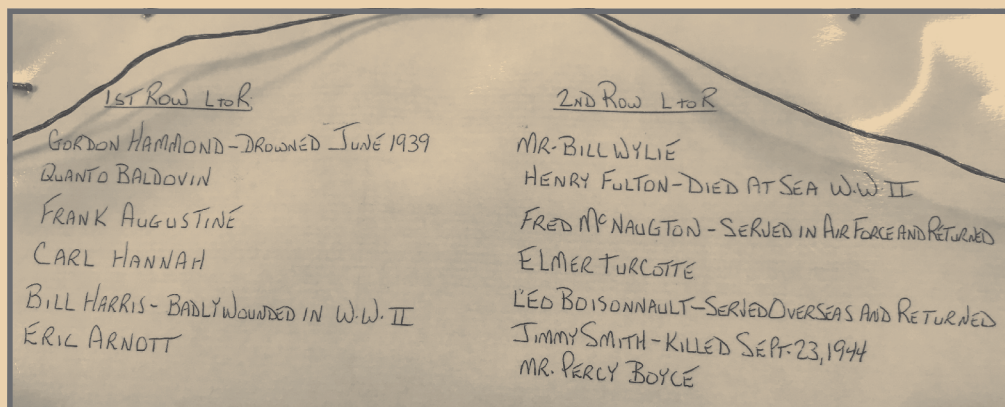 1ST ROW L TO R
GORDON HAMMOND - DROWNED JUNE 1939
QUANTO BALDOVIN
FRANK AUGUSTINE
CARL HANNAH
BILL HARRIS - BADLY WOUNDED IN W.W. II
ERIC ARNOTT
2ND ROW L TO R
MR. BILL WYLIE
HENRY FULTON - DIED AT SEA W.W II
FRED MCNAUGTON - SERVED IN AIR FORCE AND RETURNED
ELMER TURCOTTE
LEO BOISONNAULT - SERVED OVERSEAS AND RETURNED
JIMMY SMITH - KILLED SEPT. 23, 1944
MR. PERCY BOYCE